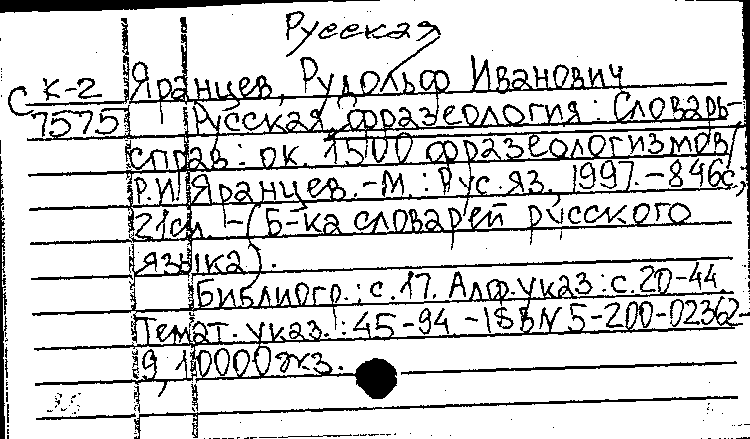 Русская
С К-2 Яранцев, Рудольф Иванович
7575 Русская фразеология: Словарь-
справ: ок. 1500 фразеологизмов/
Р.И. Яранцев.-М.: Рус.яз, 1997.-846с;
21см -(Б-ка словарей русского
языка).
Библиогр.: с.17. Алф.указ: с.20-44.
Темат.указ.: 45-94 -ISBN 5-200-02362-
9, 10000экз.